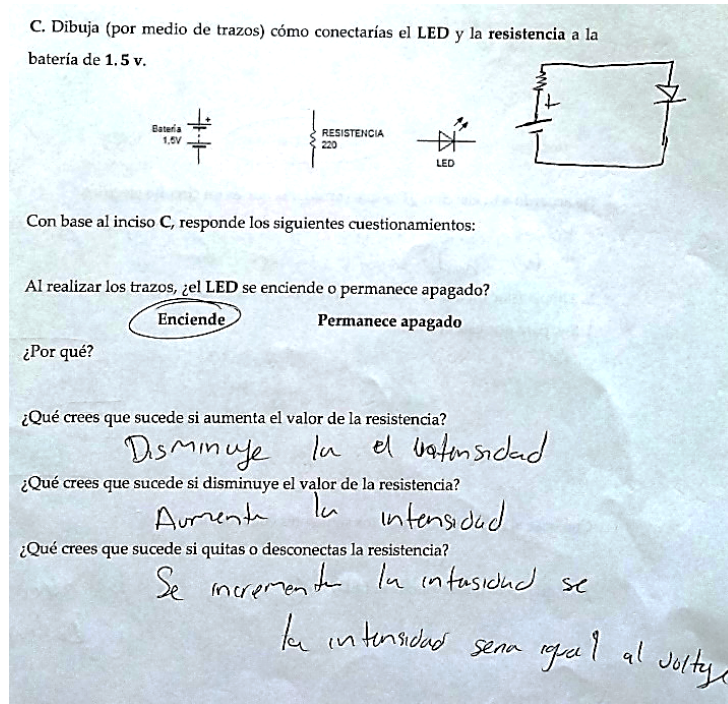 C. Dibuja (por medio de trazos) cómo conectarías el LED y la resistencia a la
batería de 1.5 v.
Batería
1,5V
+
RESISTENCIA
220
LED
+
Con base al inciso C, responde los siguientes cuestionamientos:
Al realizar los trazos, ¿el LED se enciende o permanece apagado?
Enciende Permanece apagado
¿Por qué?
¿Qué crees que sucede si aumenta el valor de la resistencia?
Disminuye la el
¿Qué crees que sucede si disminuye el valor de la resistencia?
Aumenta la intensidad
¿Qué crees que sucede si quitas o desconectas la resistencia?
Se incrementa la intusidad se
la intensidad sena igual al